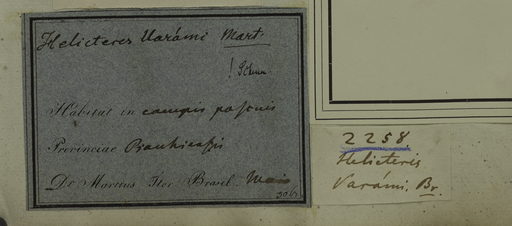 Helicteres Uarámi Mart.
! Schum.
Habitat in campis pascuis
Provinciae Piauhiensis
Dr Martius Iter Brasil. Maio
2258
Helicteris
Varámi. Br.